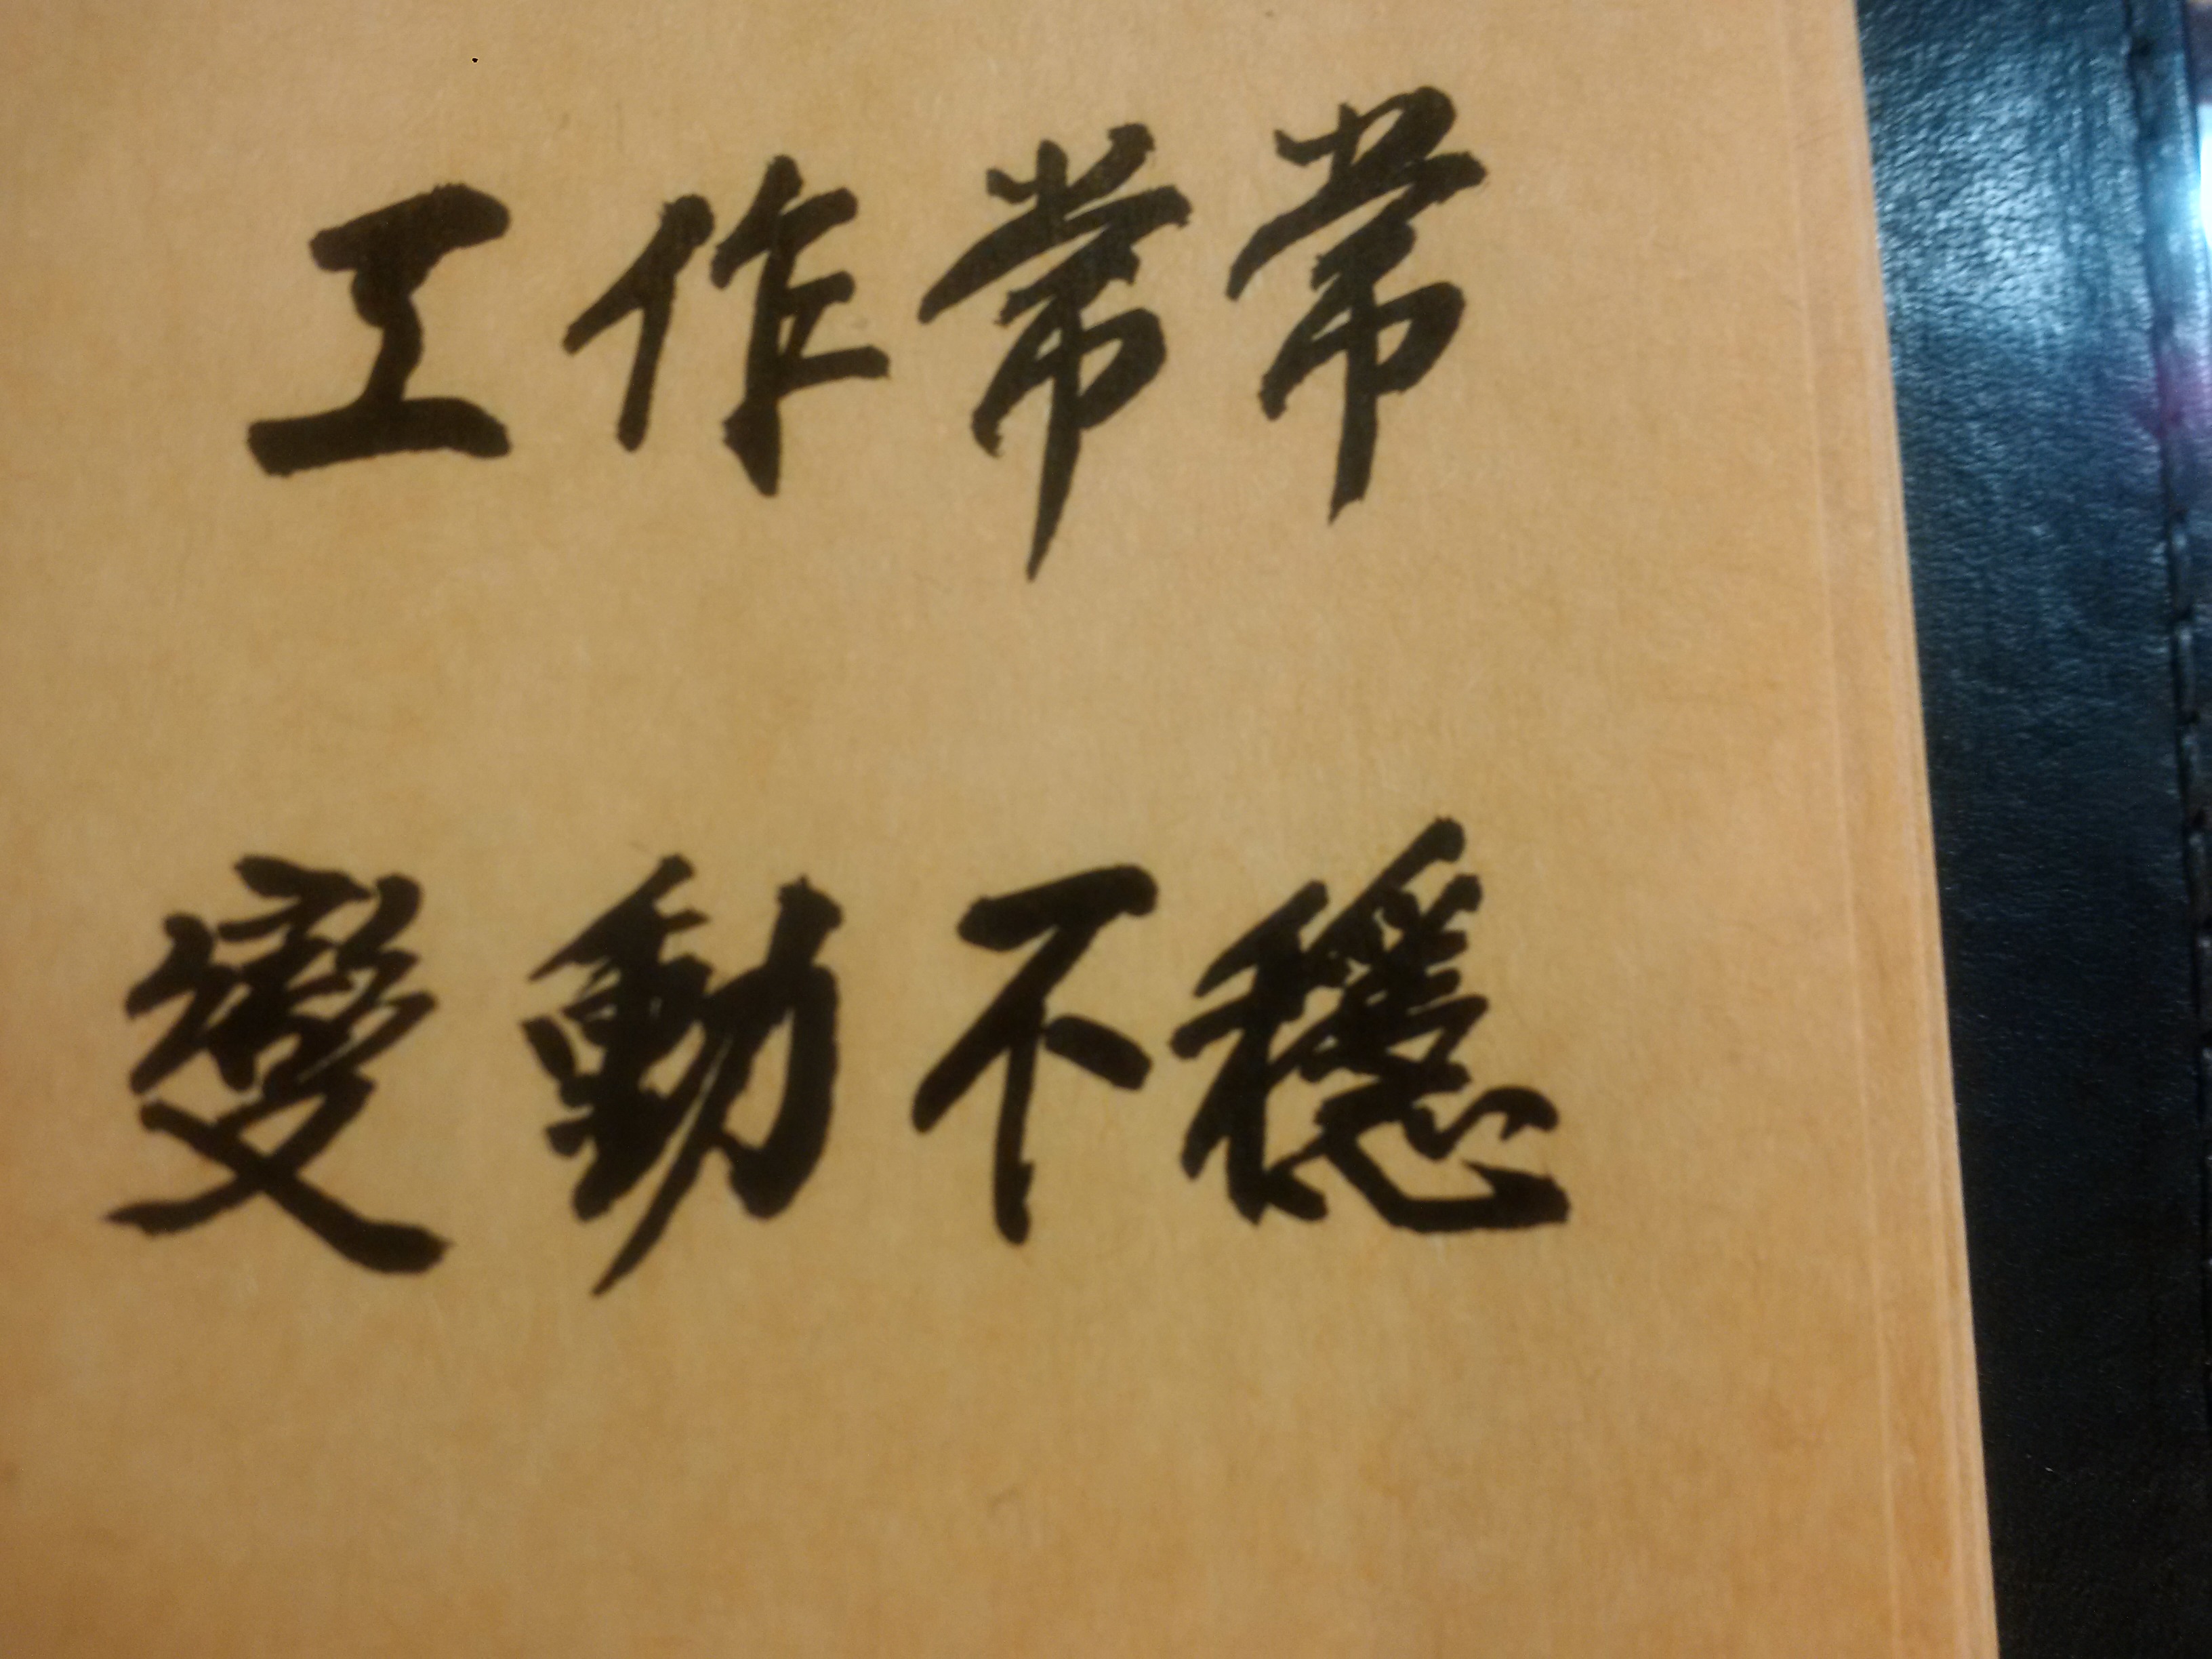 工作常常
變動不穩